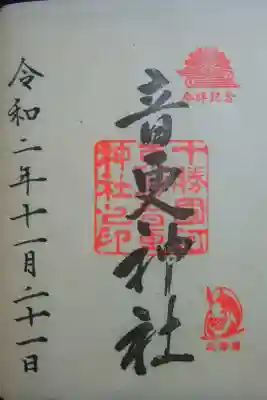 参拝記念
音更神社
十勝国
音更
神社之印
令和二年十一月二十一日